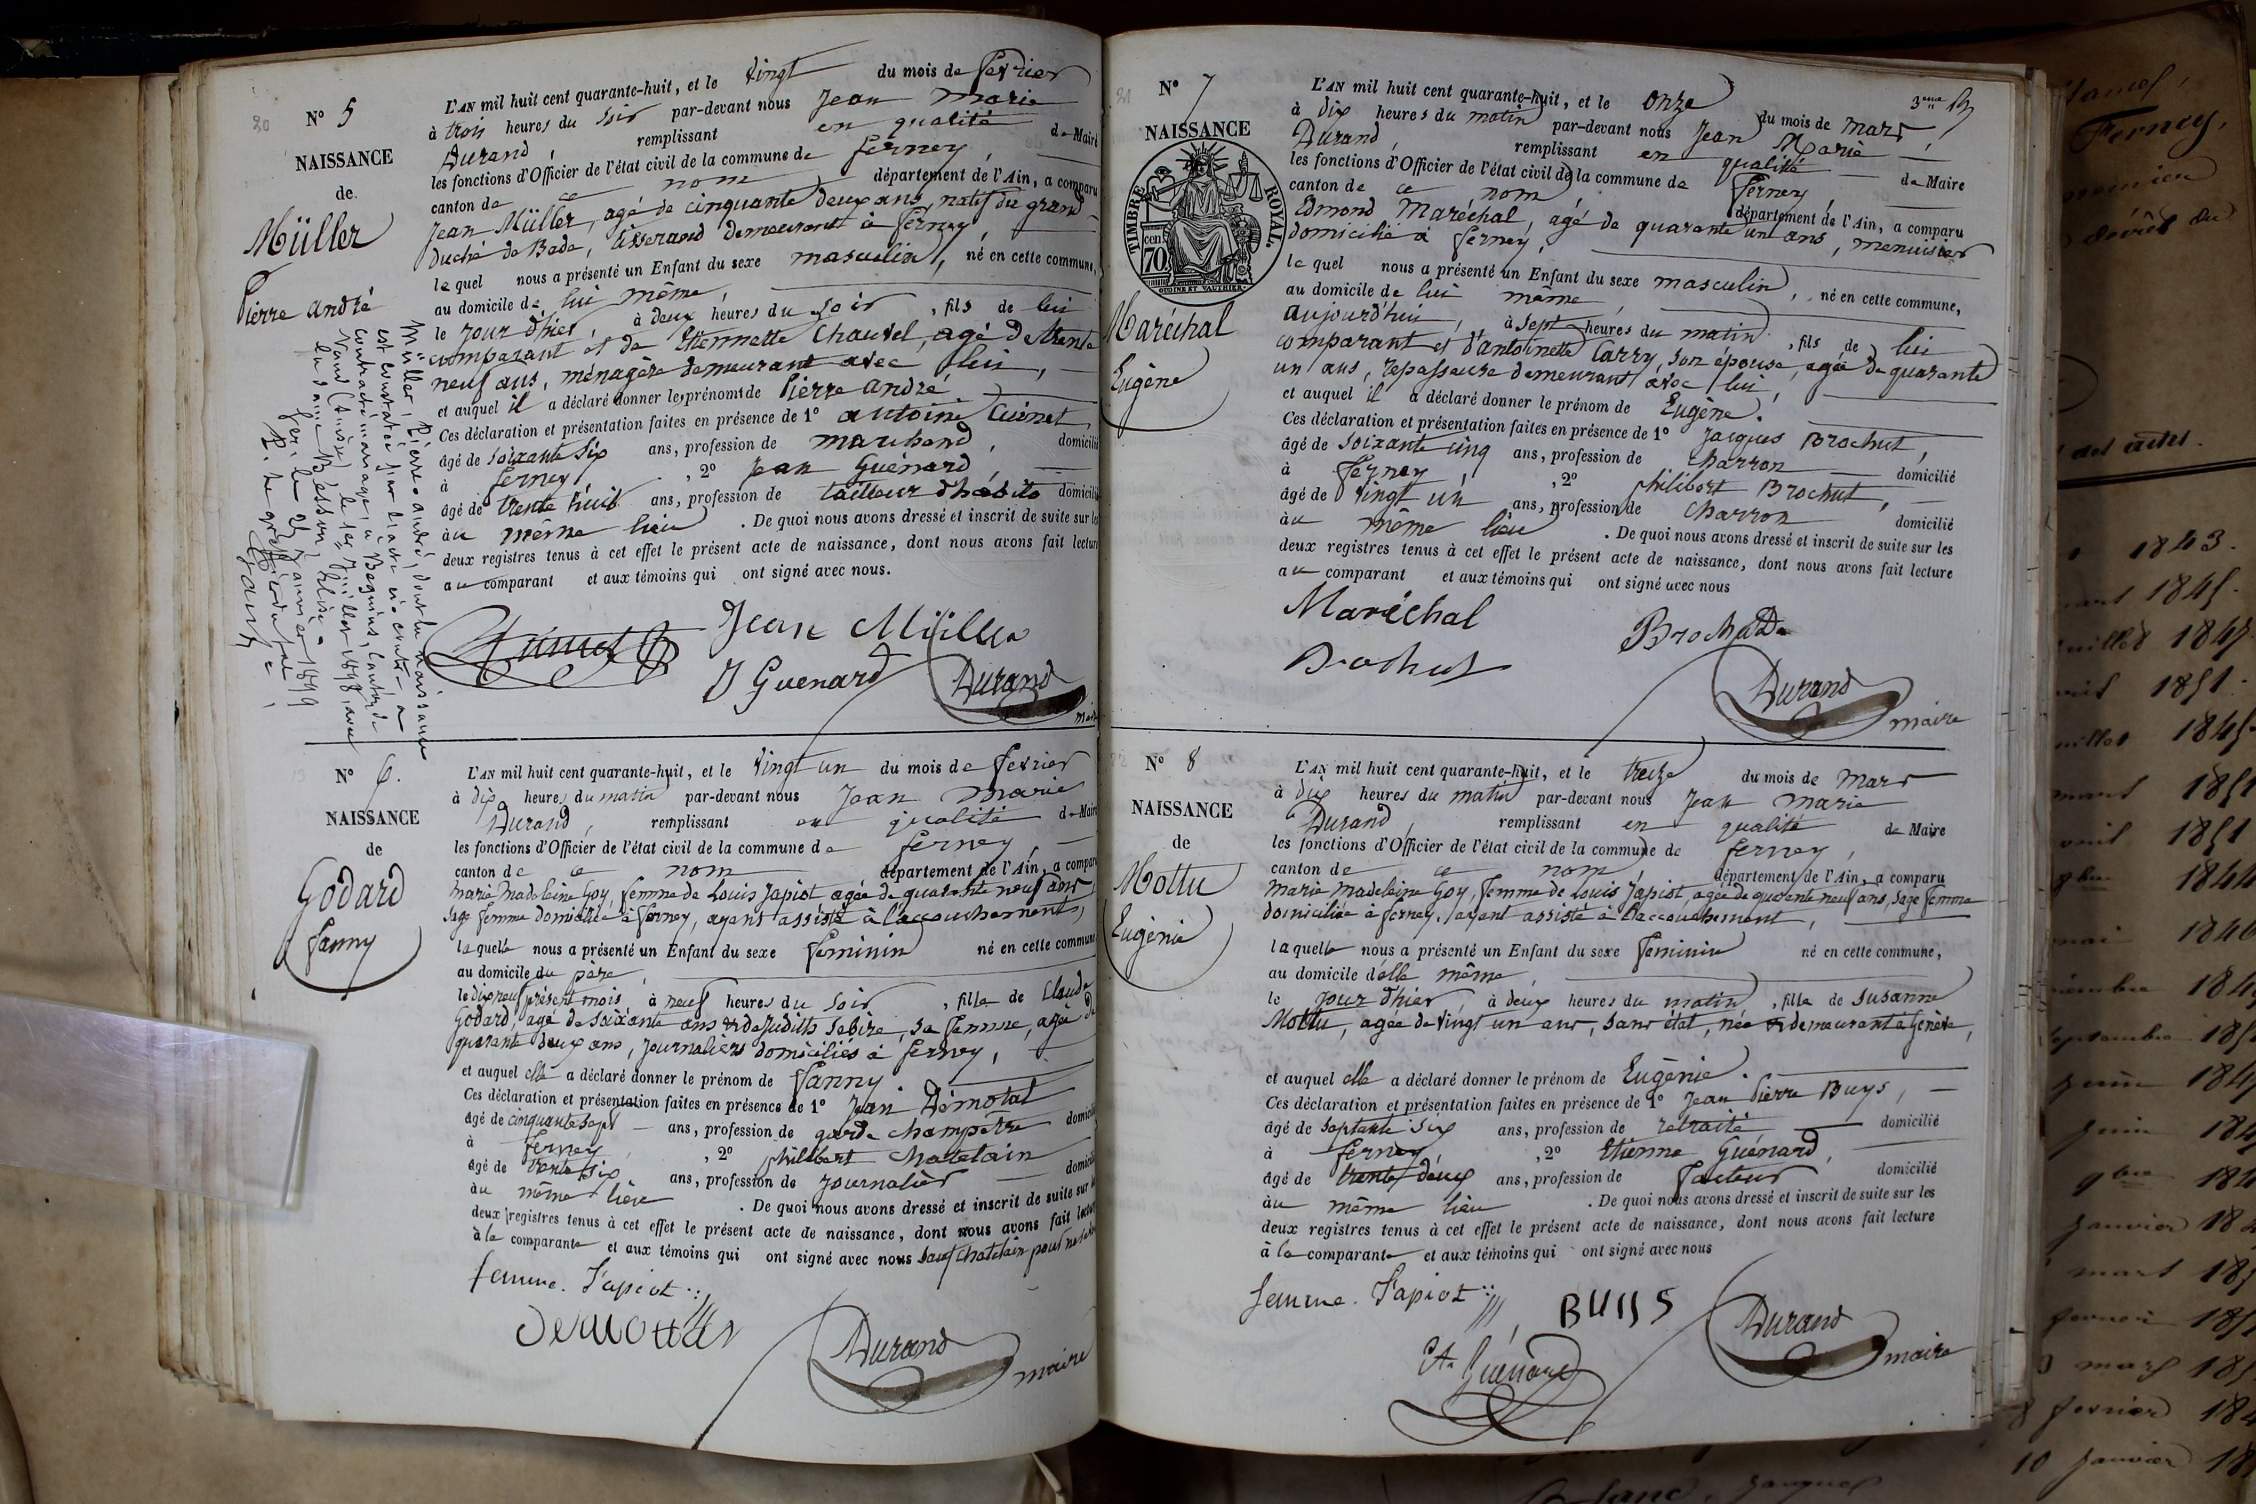 20
N° 5
NAISSANCE
de
Müller
Pierre andré
L'AN mil huit cent quarante-huit, et le vingt du mois de février
à trois heures du soir par-devant nous Jean Marie
Durand, remplissant en qualité de Maire
les fonctions d'Officier de l'état civil de la commune de ferney,
canton de ce nom département de l'Ain, a comparu
Jean Müller, agé de cinquante deux ans, natif du grand
Duché de Bade, tisserand demeurant à ferney,
le quel nous a présenté un Enfant du sexe masculin, né en cette commune,
au domicile de lui même,
le jour d'hier, à deux heures du soir, fils de lui
comparant et de Etiennette Chauvel, agé de trente
neuf ans, ménagère demeurant avec lui,
et auquel il a déclaré donner les prénoms de Pierre andré
Ces déclaration et présentation faites en présence de 1° antoine Cuénet
âgé de soixante six ans, profession de marchand, domicilié
à ferney, 2° Jean Guénard,
âgé de trente huit ans, profession de tailleur d'habits domicilié
au même lieu. De quoi nous avons dressé et inscrit de suite sur les
deux registres tenus à cet effet le présent acte de naissance, dont nous avons fait lecture
au comparant et aux témoins qui ont signé avec nous.
Jean Müller
J Guenard
Durand
maire
Müller, Pierre andré, dont la naissance
est constatée par l'acte ci-contre a
contracté mariage, à Begnins, Canton de
Vaud (Suisse), le 1er Juillet 1898, avec
Fer. le 2 Janvier 1899
N° 6.
NAISSANCE
de
Godard
fanny
L'AN mil huit cent quarante-huit, et le vingt un du mois de fevrier
à dix heures du matin par-devant nous Jean Marie
Durand, remplissant en qualité de Maire
les fonctions d'Officier de l'état civil de la commune de ferney
canton de ce nom département de l'Ain, a comparu
marie Madeleine Goy, femme de Louis Japiot agée de quarante neuf ans,
sage femme domiciliée à ferney, ayant assisté à l'accouchement,
laquelle nous a présenté un Enfant du sexe feminin né en cette commune
au domicile du père,
le dix neuf présent mois, à neuf heures du soir, fille de Claude
Godard, agé de soixante ans & de Judith Sabire, sa femme, agée de
quarante deux ans, journaliers domiciliés à ferney,
et auquel elle a déclaré donner le prénom de fanny.
Ces déclaration et présentation faites en présence de 1° Jean Démotat
âgé de cinquante sept ans, profession de garde champêtre domicilié
à ferney, 2° philibert Chatelain
âgé de trente six ans, profession de journalier domicilié
au même lieu. De quoi nous avons dressé et inscrit de suite sur les
deux registres tenus à cet effet le présent acte de naissance, dont nous avons fait lecture
à la comparante et aux témoins qui ont signé avec nous sauf Chatelain pour ne savoir
femme. Japiot
Durand
maire
21
N° 7
NAISSANCE
TIMBRE ROYAL.
70 cen
Maréchal
Eugène
3eme
L'AN mil huit cent quarante-huit, et le onze du mois de mars
à dix heures du matin par-devant nous Jean Marie
Durand, remplissant en qualité de Maire
les fonctions d'Officier de l'état civil de la commune de ferney
canton de ce nom département de l'Ain, a comparu
Edmond Maréchal, agé de quarante un ans, menuisier
domicilié à ferney,
le quel nous a présenté un Enfant du sexe masculin, né en cette commune,
au domicile de lui même
aujourd'hui, à sept heures du matin, fils de lui
comparant et d'antoinette Carry, son épouse, agée de quarante
un ans, repasseuse demeurant avec lui,
et auquel il a déclaré donner le prénom de Eugène.
Ces déclaration et présentation faites en présence de 1° Jacques Brochut,
âgé de soixante cinq ans, profession de charron domicilié
à ferney, 2° philibert Brochut,
âgé de vingt un ans, profession de charron domicilié
au même lieu. De quoi nous avons dressé et inscrit de suite sur les
deux registres tenus à cet effet le présent acte de naissance, dont nous avons fait lecture
au comparant et aux témoins qui ont signé avec nous
Maréchal
Brochut
Durand
maire
22
N° 8
NAISSANCE
de
Mottu
Eugénie
L'AN mil huit cent quarante-huit, et le treize du mois de Mars
à dix heures du matin par-devant nous Jean Marie
Durand, remplissant en qualité de Maire
les fonctions d'Officier de l'état civil de la commune de ferney,
canton de ce nom département de l'Ain, a comparu
marie madeleine Goy, femme de Louis Japiot, agée de quarante neuf ans, sage femme
domiciliée à ferney, ayant assisté à l'accouchement,
laquelle nous a présenté un Enfant du sexe feminin né en cette commune,
au domicile d'elle même,
le jour d'hier, à deux heures du matin, fille de Susanne
Mottu, agée de vingt un ans, sans état, née & demeurant à Genève,
et auquel elle a déclaré donner le prénom de Eugénie.
Ces déclaration et présentation faites en présence de 1° Jean Pierre Buys,
âgé de septante six ans, profession de retraité domicilié
à ferney, 2° Etienne Guénard,
âgé de trente deux ans, profession de facteur domicilié
au même lieu. De quoi nous avons dressé et inscrit de suite sur les
deux registres tenus à cet effet le présent acte de naissance, dont nous avons fait lecture
à la comparante et aux témoins qui ont signé avec nous
femme. Japiot
BUYS
Guénard
Durand
maire
Ferney,
1843.
1845.
1851